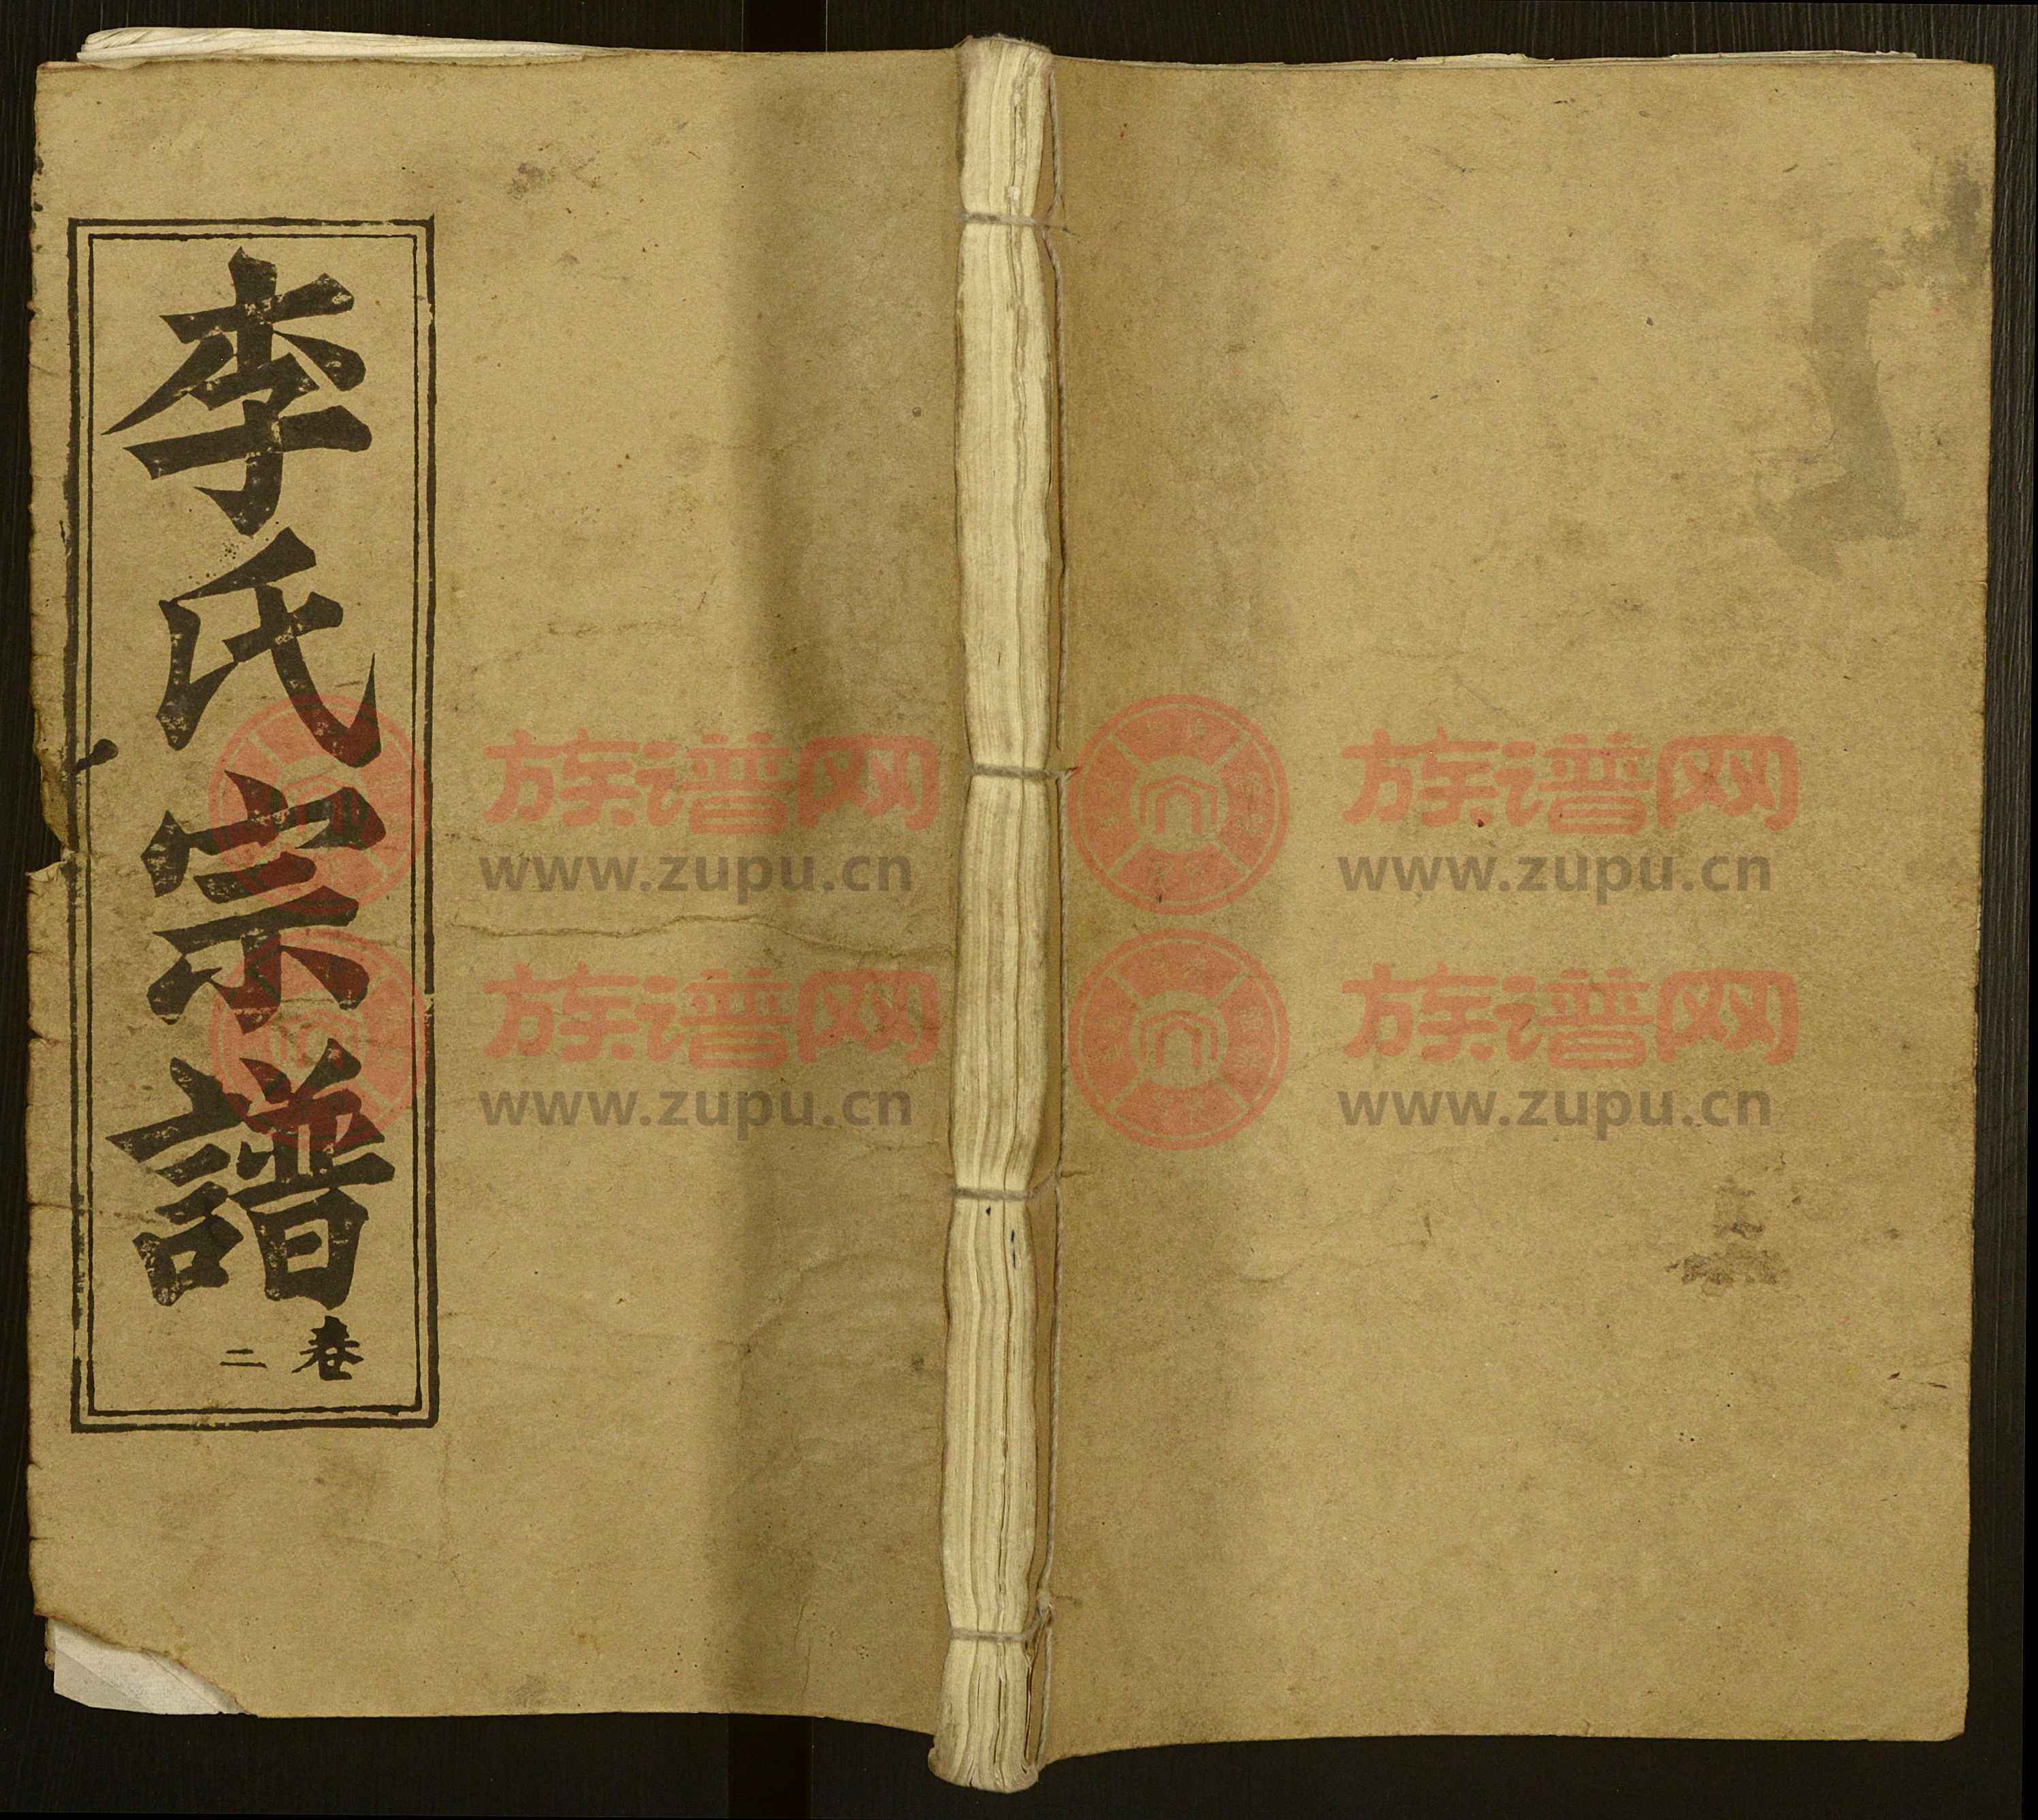 李氏宗譜
卷二
族谱网
www.zupu.cn
族谱网
www.zupu.cn
族谱网
www.zupu.cn
族谱网
www.zupu.cn